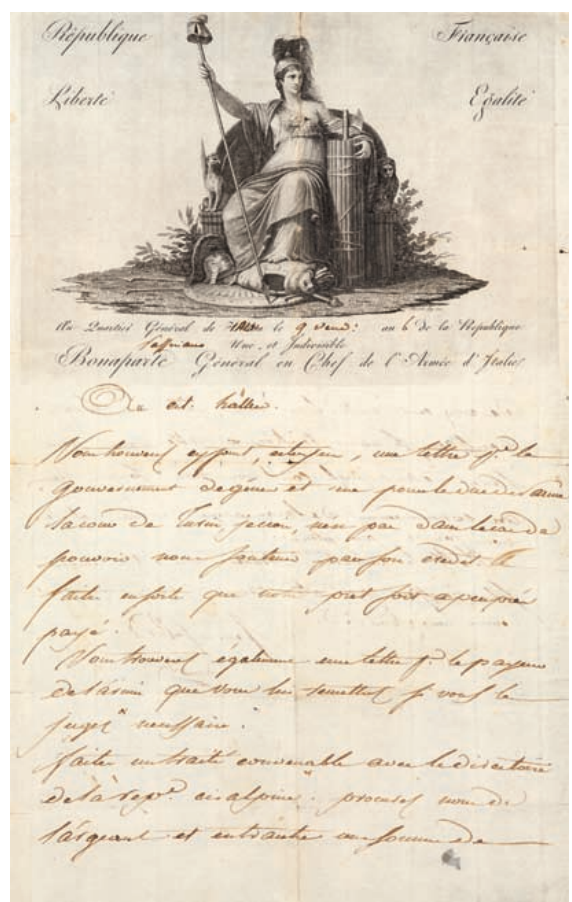 République Française
Liberté Egalité
Au Quartier Général de le 9 Vend: an 6 de la République
Passeriano Une et Indivisible
Bonaparte Général en Chef de l'Armée d'Italie
Au cit. haller.
Vous trouverez cyjoint, citoyen, une lettre pr. le
gouvernement de gêne et une pour le duc de
la cour de Turin je crois, n'est pas dans le cas de
pouvoir nous soutenir par son credit
faite ensorte que notre pret soit apeuprès
payé.
Vous trouverez également une lettre pr. le payeur
de l'armée que vous lui remettrez si vous le
jugez nessaire.
faites un traité convenable avec le directoire
de la rep. cisalpine. procurez nous de
l'argeant et entrautre une somme de